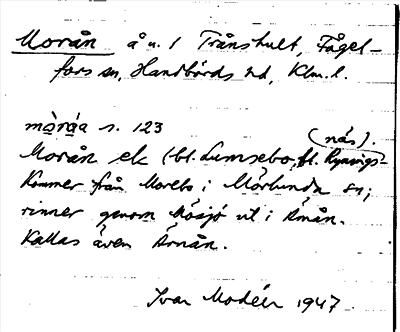 Morån å n. 1 Trånshult, Fågel-
fors sn, Handbörds hd, Klm. l.
mòráa s. 123
Morån ek (bl. Lumsebo, fl. Rynings-
(näs).
Kommer från Morebo i Mörlunda sn;
rinner genom Mösjö ut i Åmån.
Kallas även Årnån.
Ivar Modéer 1947.